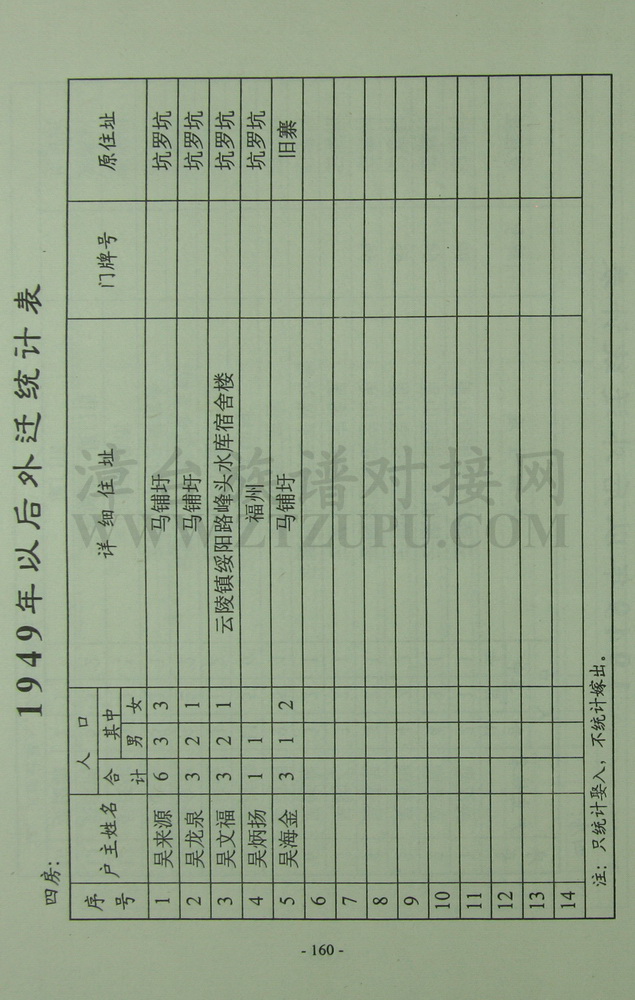 1949年以后外迁统计表
四房：
序号 户主姓名 人口 详细住址 门牌号 原住址
合计 其中
男 女
1 吴来源 6 3 3 马铺圩 坑罗坑
2 吴龙泉 3 2 1 马铺圩 坑罗坑
3 吴文福 3 2 1 云陵镇绥阳路峰头水库宿舍楼 坑罗坑
4 吴炳扬 1 1 福州 坑罗坑
5 吴海金 3 1 2 马铺圩 旧寨
6
7
8
9
10
11
12
13
14
注：只统计娶入，不统计嫁出。
- 160 -
漳台族谱对接网
WWW.ZTZUPU.COM